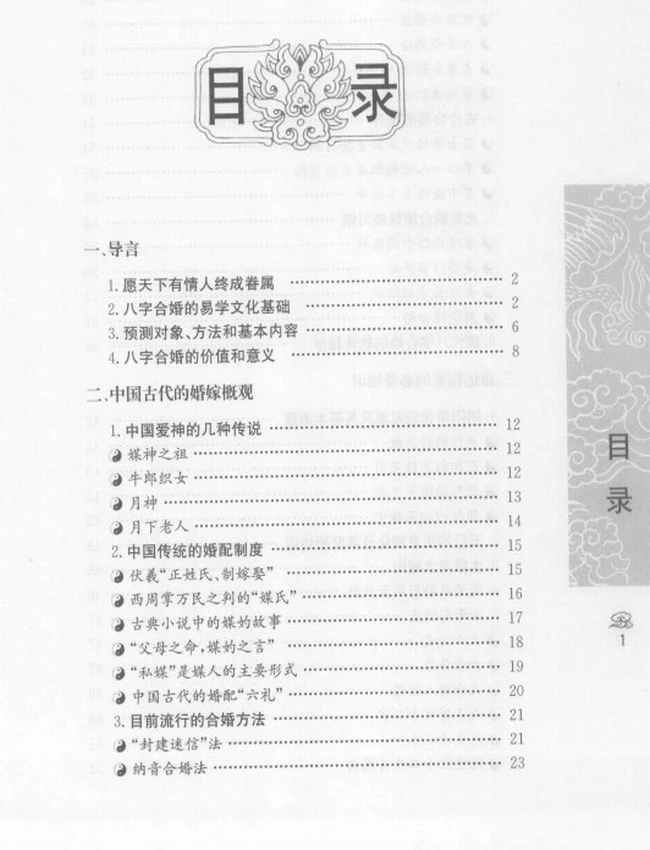 目录
一、导言
1.愿天下有情人终成眷属 …………………… 2
2.八字合婚的易学文化基础 …………………… 2
3.预测对象、方法和基本内容 …………………… 6
4.八字合婚的价值和意义 …………………… 8
二、中国古代的婚嫁概观
1.中国爱神的几种传说 …………………… 12
媒神之祖 …………………… 12
牛郎织女 …………………… 12
月神 …………………… 13
月下老人 …………………… 14
2.中国传统的婚配制度 …………………… 15
伏羲“正姓氏、制嫁娶” …………………… 15
西周掌万民之判的“媒氏” …………………… 16
古典小说中的媒妁故事 …………………… 17
“父母之命,媒妁之言” …………………… 18
“私媒”是媒人的主要形式 …………………… 19
中国古代的婚配“六礼” …………………… 20
3.目前流行的合婚方法 …………………… 21
“封建迷信”法 …………………… 21
纳音合婚法 …………………… 23
目录
1